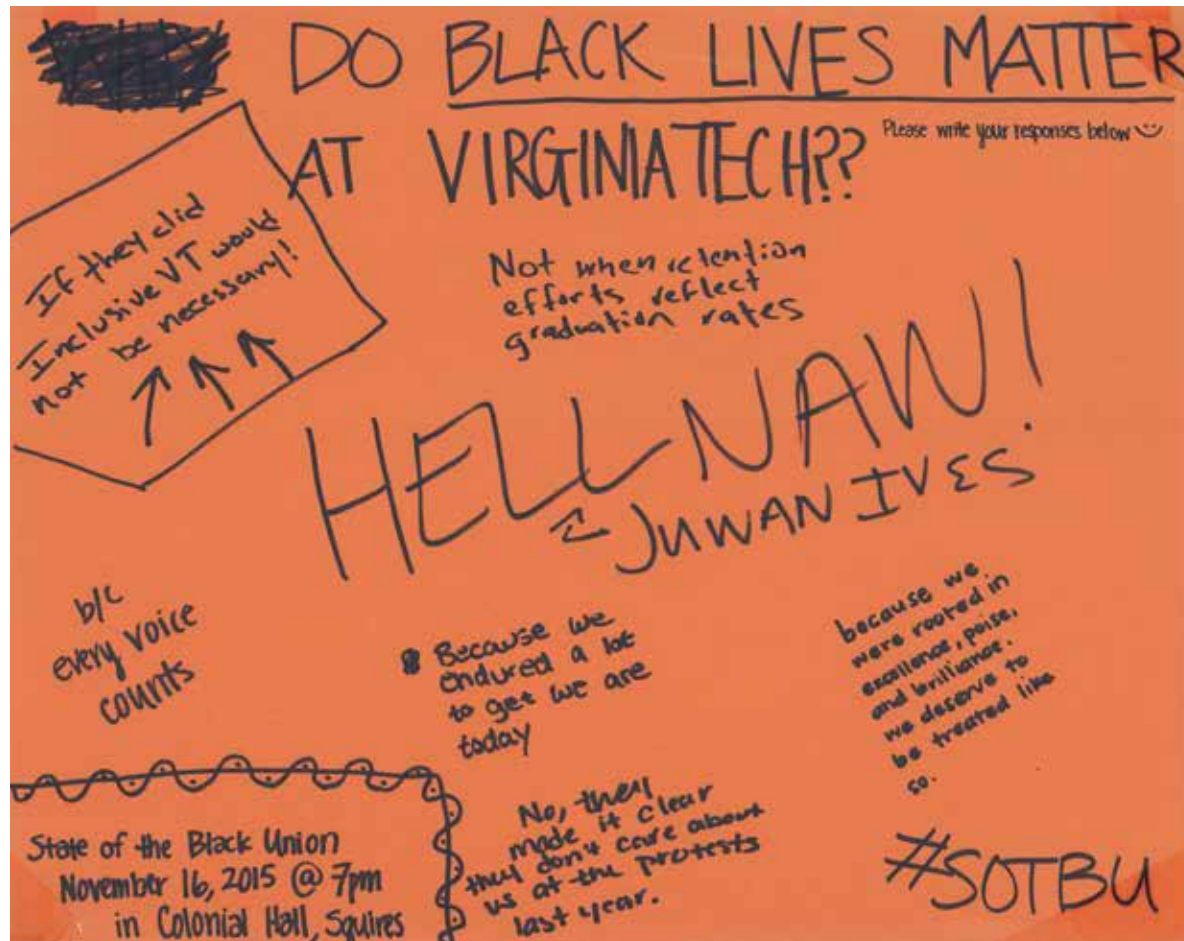 DO BLACK LIVES MATTER
AT VIRGINIA TECH??
Please write your responses below
If they did
Inclusive VT would
not be necessary!
Not when retention
efforts reflect
graduation rates
HELL NAW!
JUWAN IVES
b/c
every voice
counts
Because we
endured a lot
to get we are
today
because we
were rooted in
excellence, poise,
and brilliance.
we deserve to
be treated like
so.
No, they
made it clear
they don't care about
us at the protests
last year.
State of the Black Union
November 16, 2015 @ 7pm
in Colonial Hall, Squires
#SOTBU